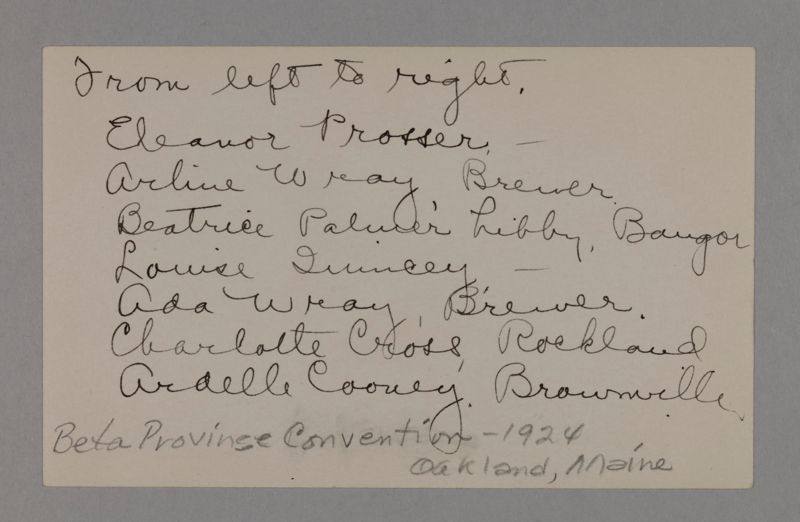 From left to right.
Eleanor Prosser. —
Arline Wray Brewer.
Beatrice Palmer Libby, Bangor
Louise Quincey —
Ada Wray, Brewer.
Charlotte Cross, Rockland
Ardelle Cooney, Brownville
Beta Provinse Convention - 1924
Oakland, Maine